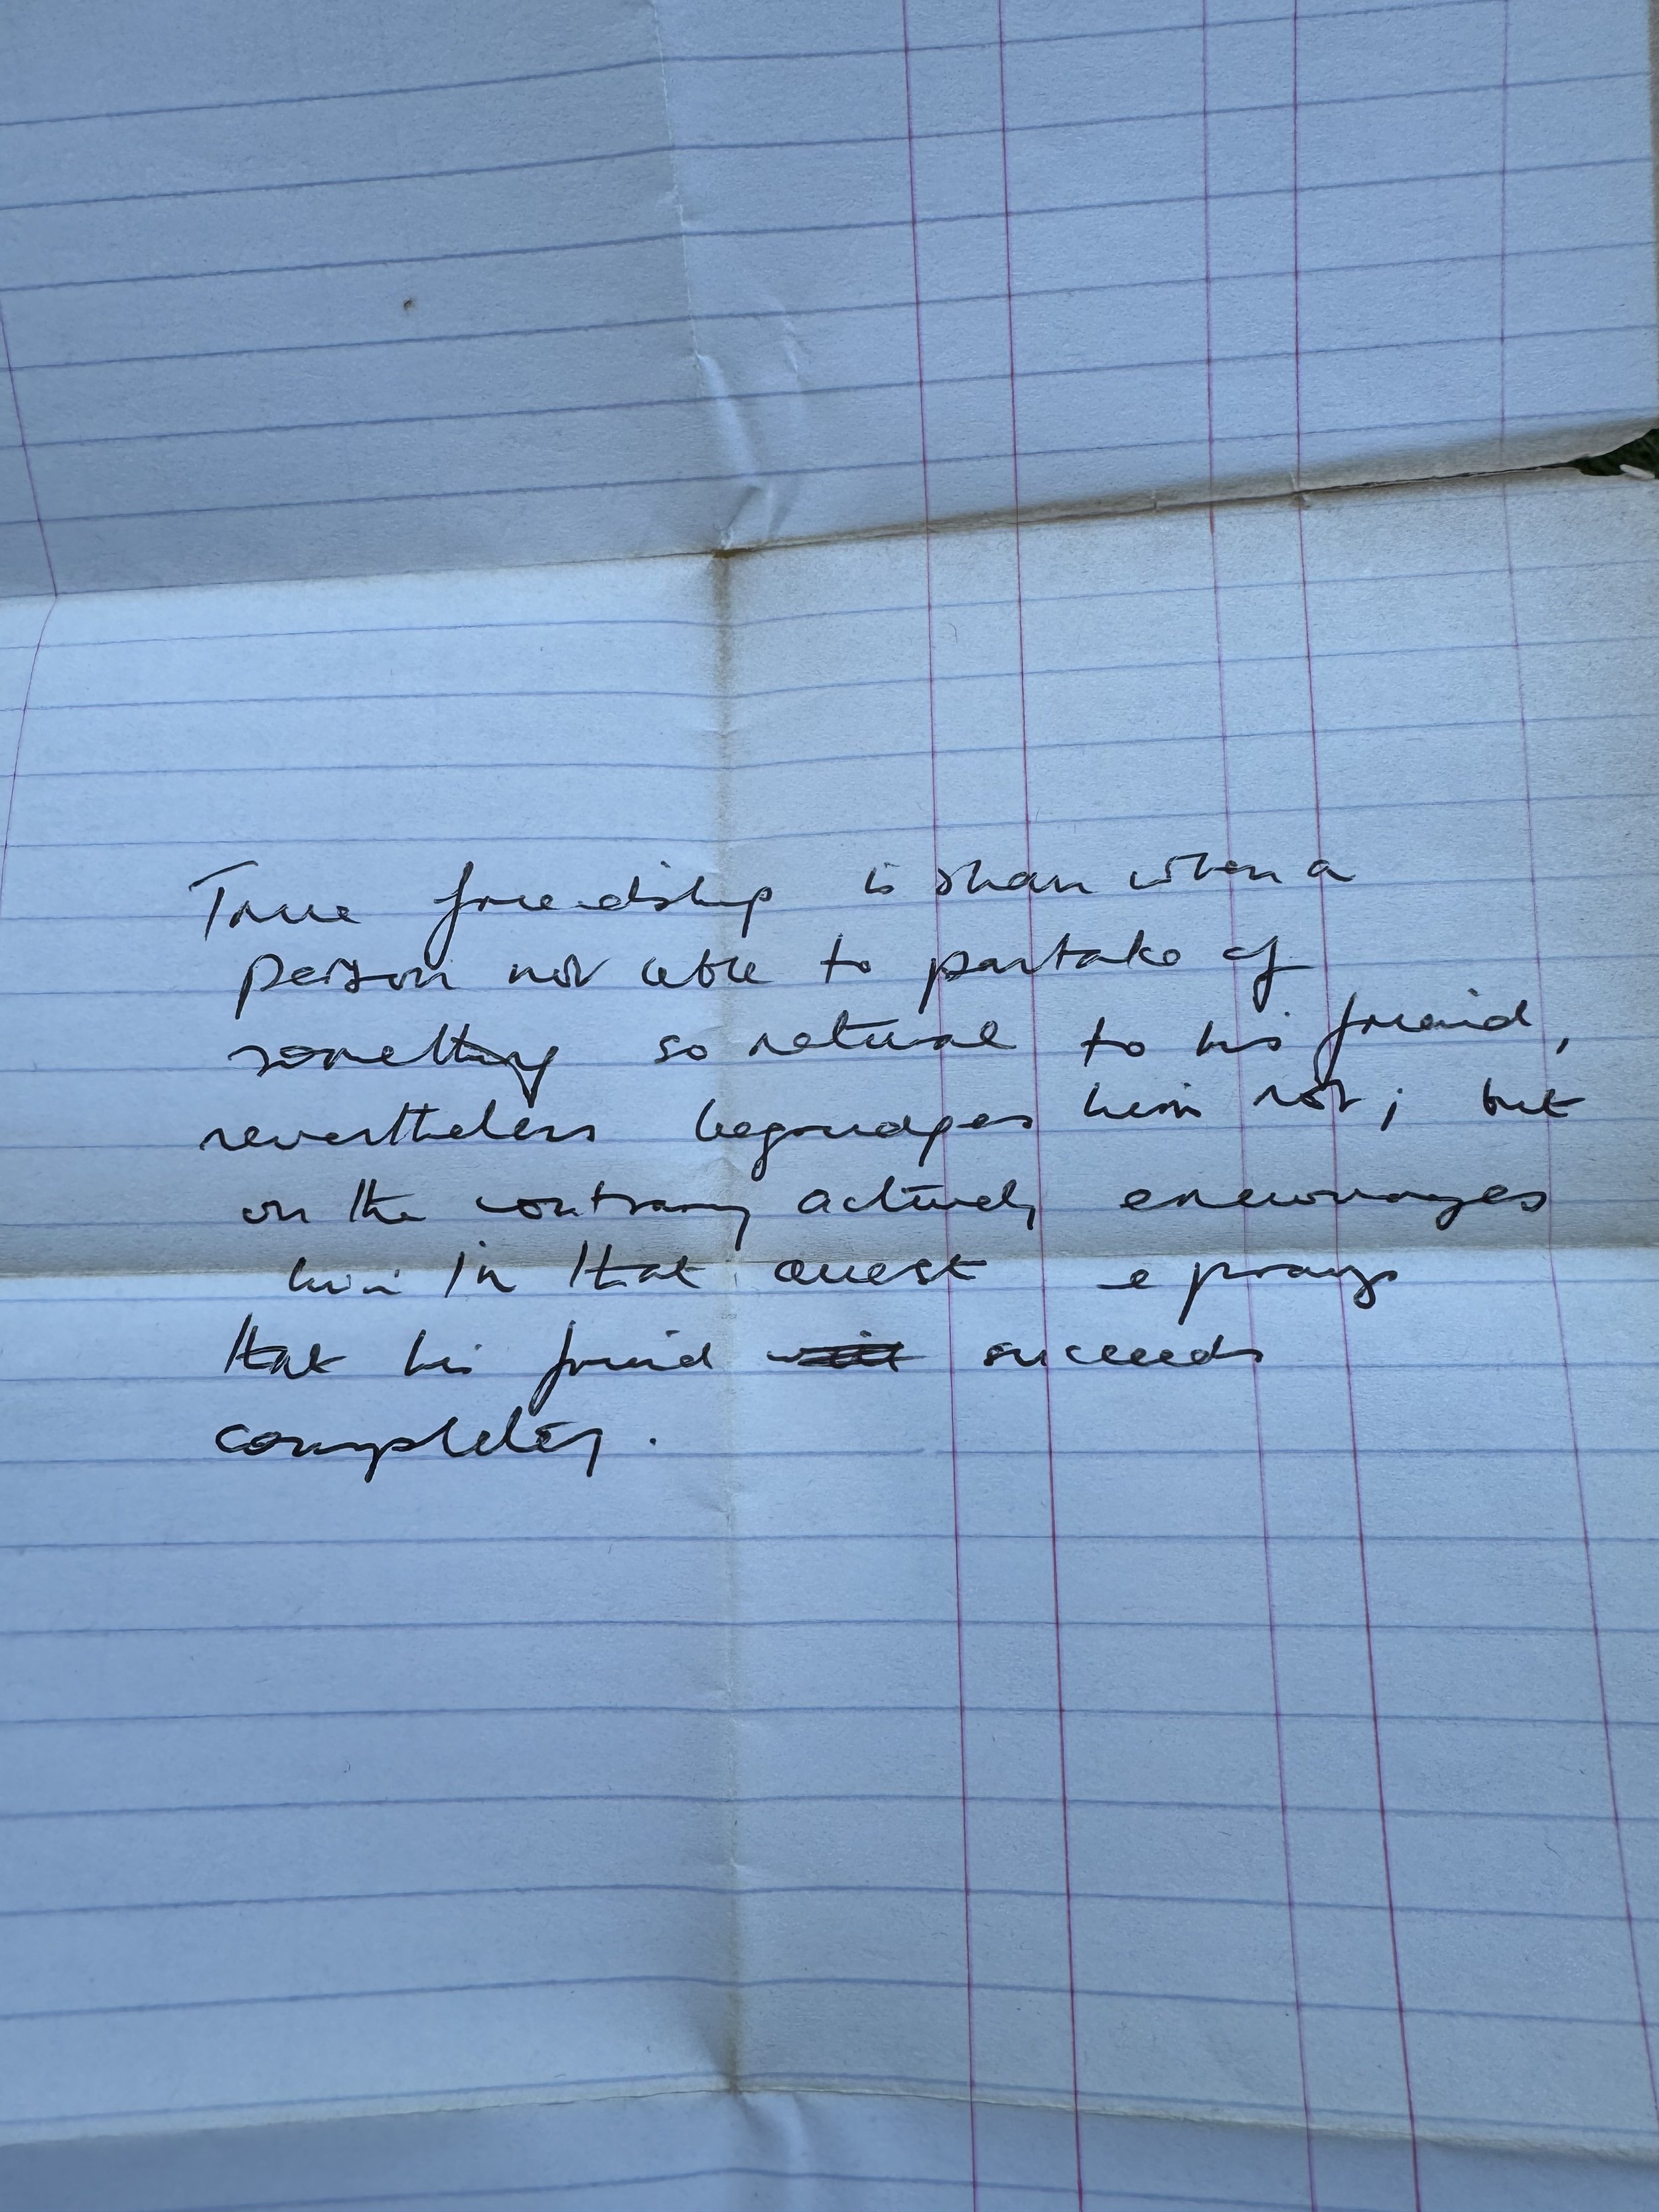 True friendship is shown when a
person not able to partake of
something so natural to his friend,
nevertheless begrudges him not; but
on the contrary actively encourages
him in that quest & prays
that his friend succeeds
completely.